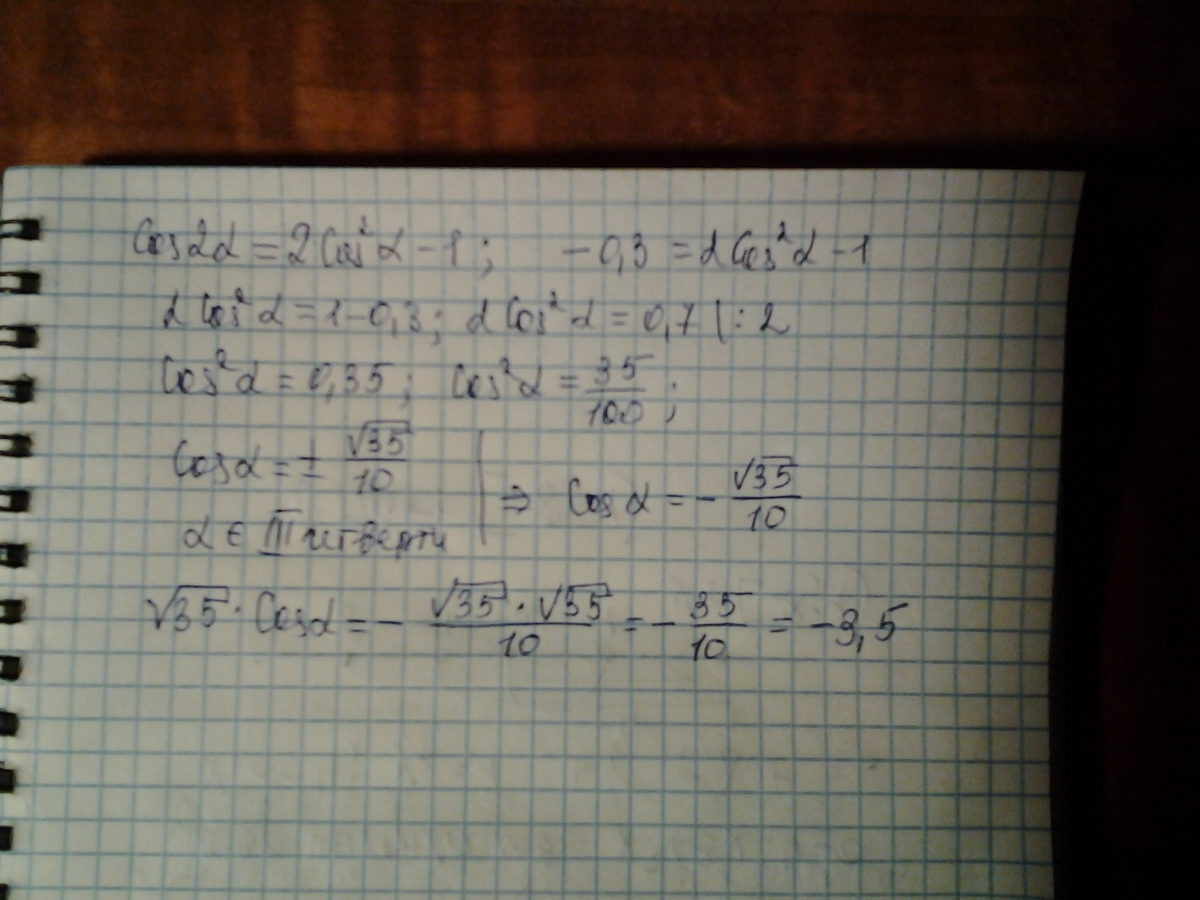 Cos2α = 2Cos²α - 1 ; -0,3 = 2Cos²α - 1
2Cos²α = 1 - 0,3 ; 2Cos²α = 0,7 | : 2
Cos²α = 0,35 ; Cos²α = 35/100 ;
Cosα = ± √35/10
α ∈ III четверти | ⇒ Cosα = - √35/10
√35 · Cosα = - √35 · √35/10 = - 35/10 = -3,5